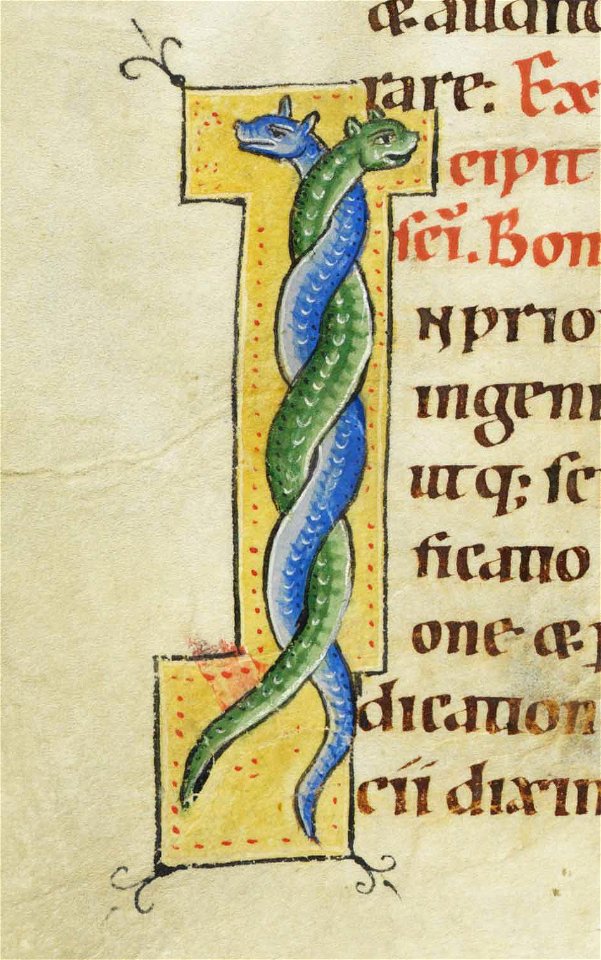 & audino
rare: Ex
cipit
sci. Bon
I
n prio
ingeni
utq; sc
ficatio
one & p
dication
cii dixim